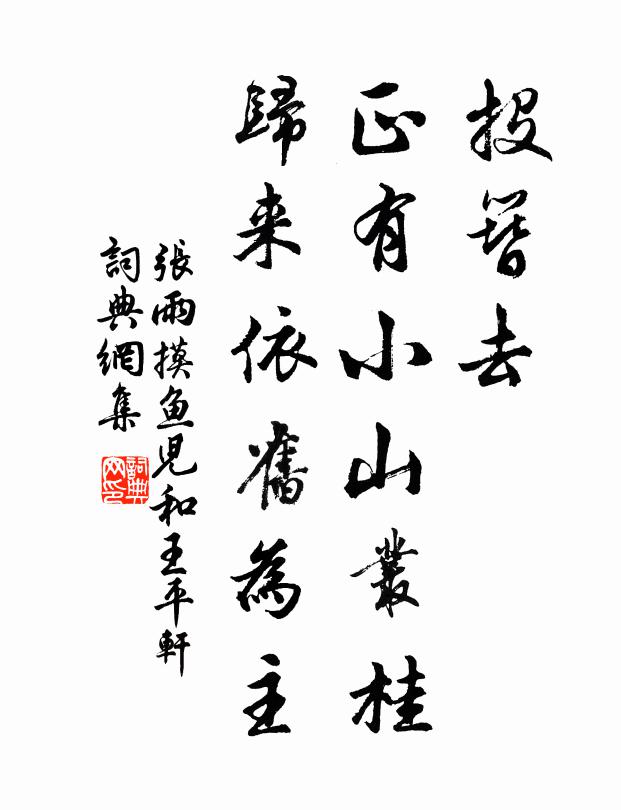 投簪去
正有小山叢桂
歸来依舊為主
張雨摸魚児和王平軒
詞典網集
詞典
网印